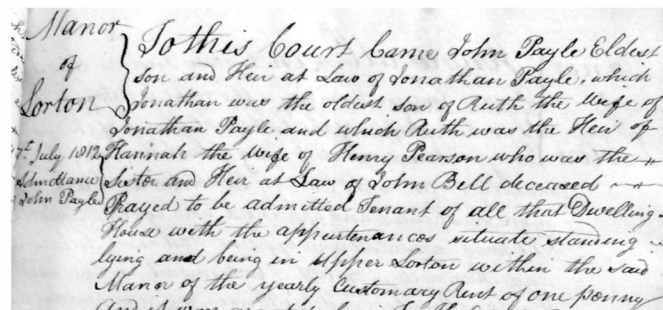 Manor
of
Lorton
7th July 1812
Admittance
John Payle
To this Court Came John Payle Eldest
son and Heir at Law of Jonathan Payle, which
Jonathan was the oldest son of Ruth the Wife of
Jonathan Payle and which Ruth was the Heir of
Hannah the Wife of Henry Pearson who was the
Sister and Heir at Law of John Bell deceased
Prayed to be admitted Tenant of all that Dwelling
House with the appurtenances situate standing
lying and being in Upper Lorton within the said
Manor of the yearly Customary Rent of one penny
And it was